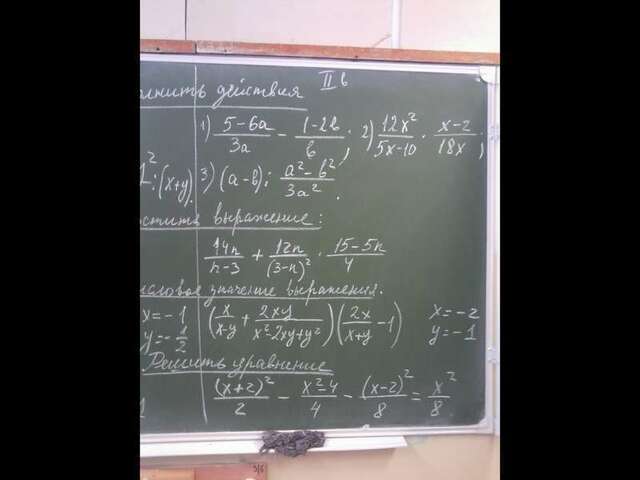 II в
лнить действия
1) (5-6a)/(3a) - (1-2в)/в; 2) (12x²)/(5x-10) · (x-2)/(18x);
²:(x+y) 3) (a-в): (a²-в²)/(3a²).
стить выражение:
(14n)/(n-3) + (12n)/(3-n)² · (15-5n)/4
исловое значение выражения.
x=-1 (x/(x-y) + (2xy)/(x²-2xy+y²)) ((2x)/(x+y) - 1) x=-2
y=-1/2 y=-1
Решить уравнение
(x+2)²/2 - (x²-4)/4 - (x-2)²/8 = x²/8